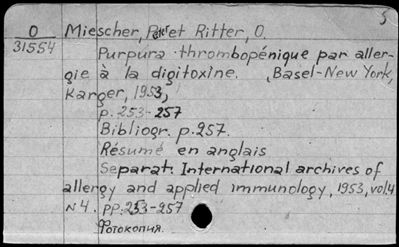 5
O Miescher, P. et Ritter, O.
31554
Purpúra thrombopénique par aller-
gie à la digitoxine. Basel-New York,
Karger, 1953,
p. 253-257
Bibliogr. p. 257.
Résumé en anglais
Separat: International archives of
allergy and applied immunology, 1953, vol. 4
N 4. pp. 253-257
Фотокопия.